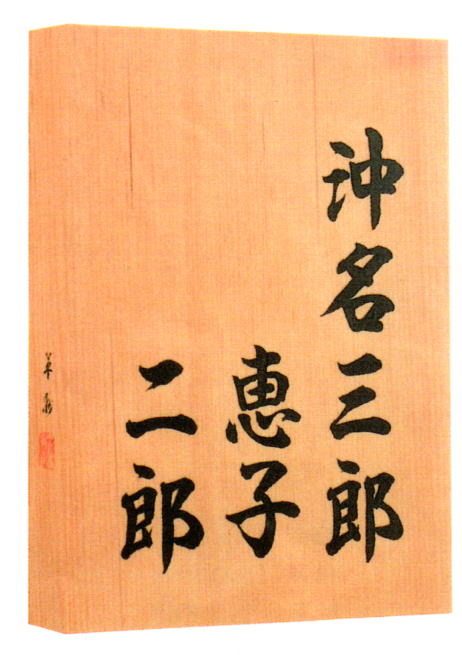 沖名三郎
恵子
二郎